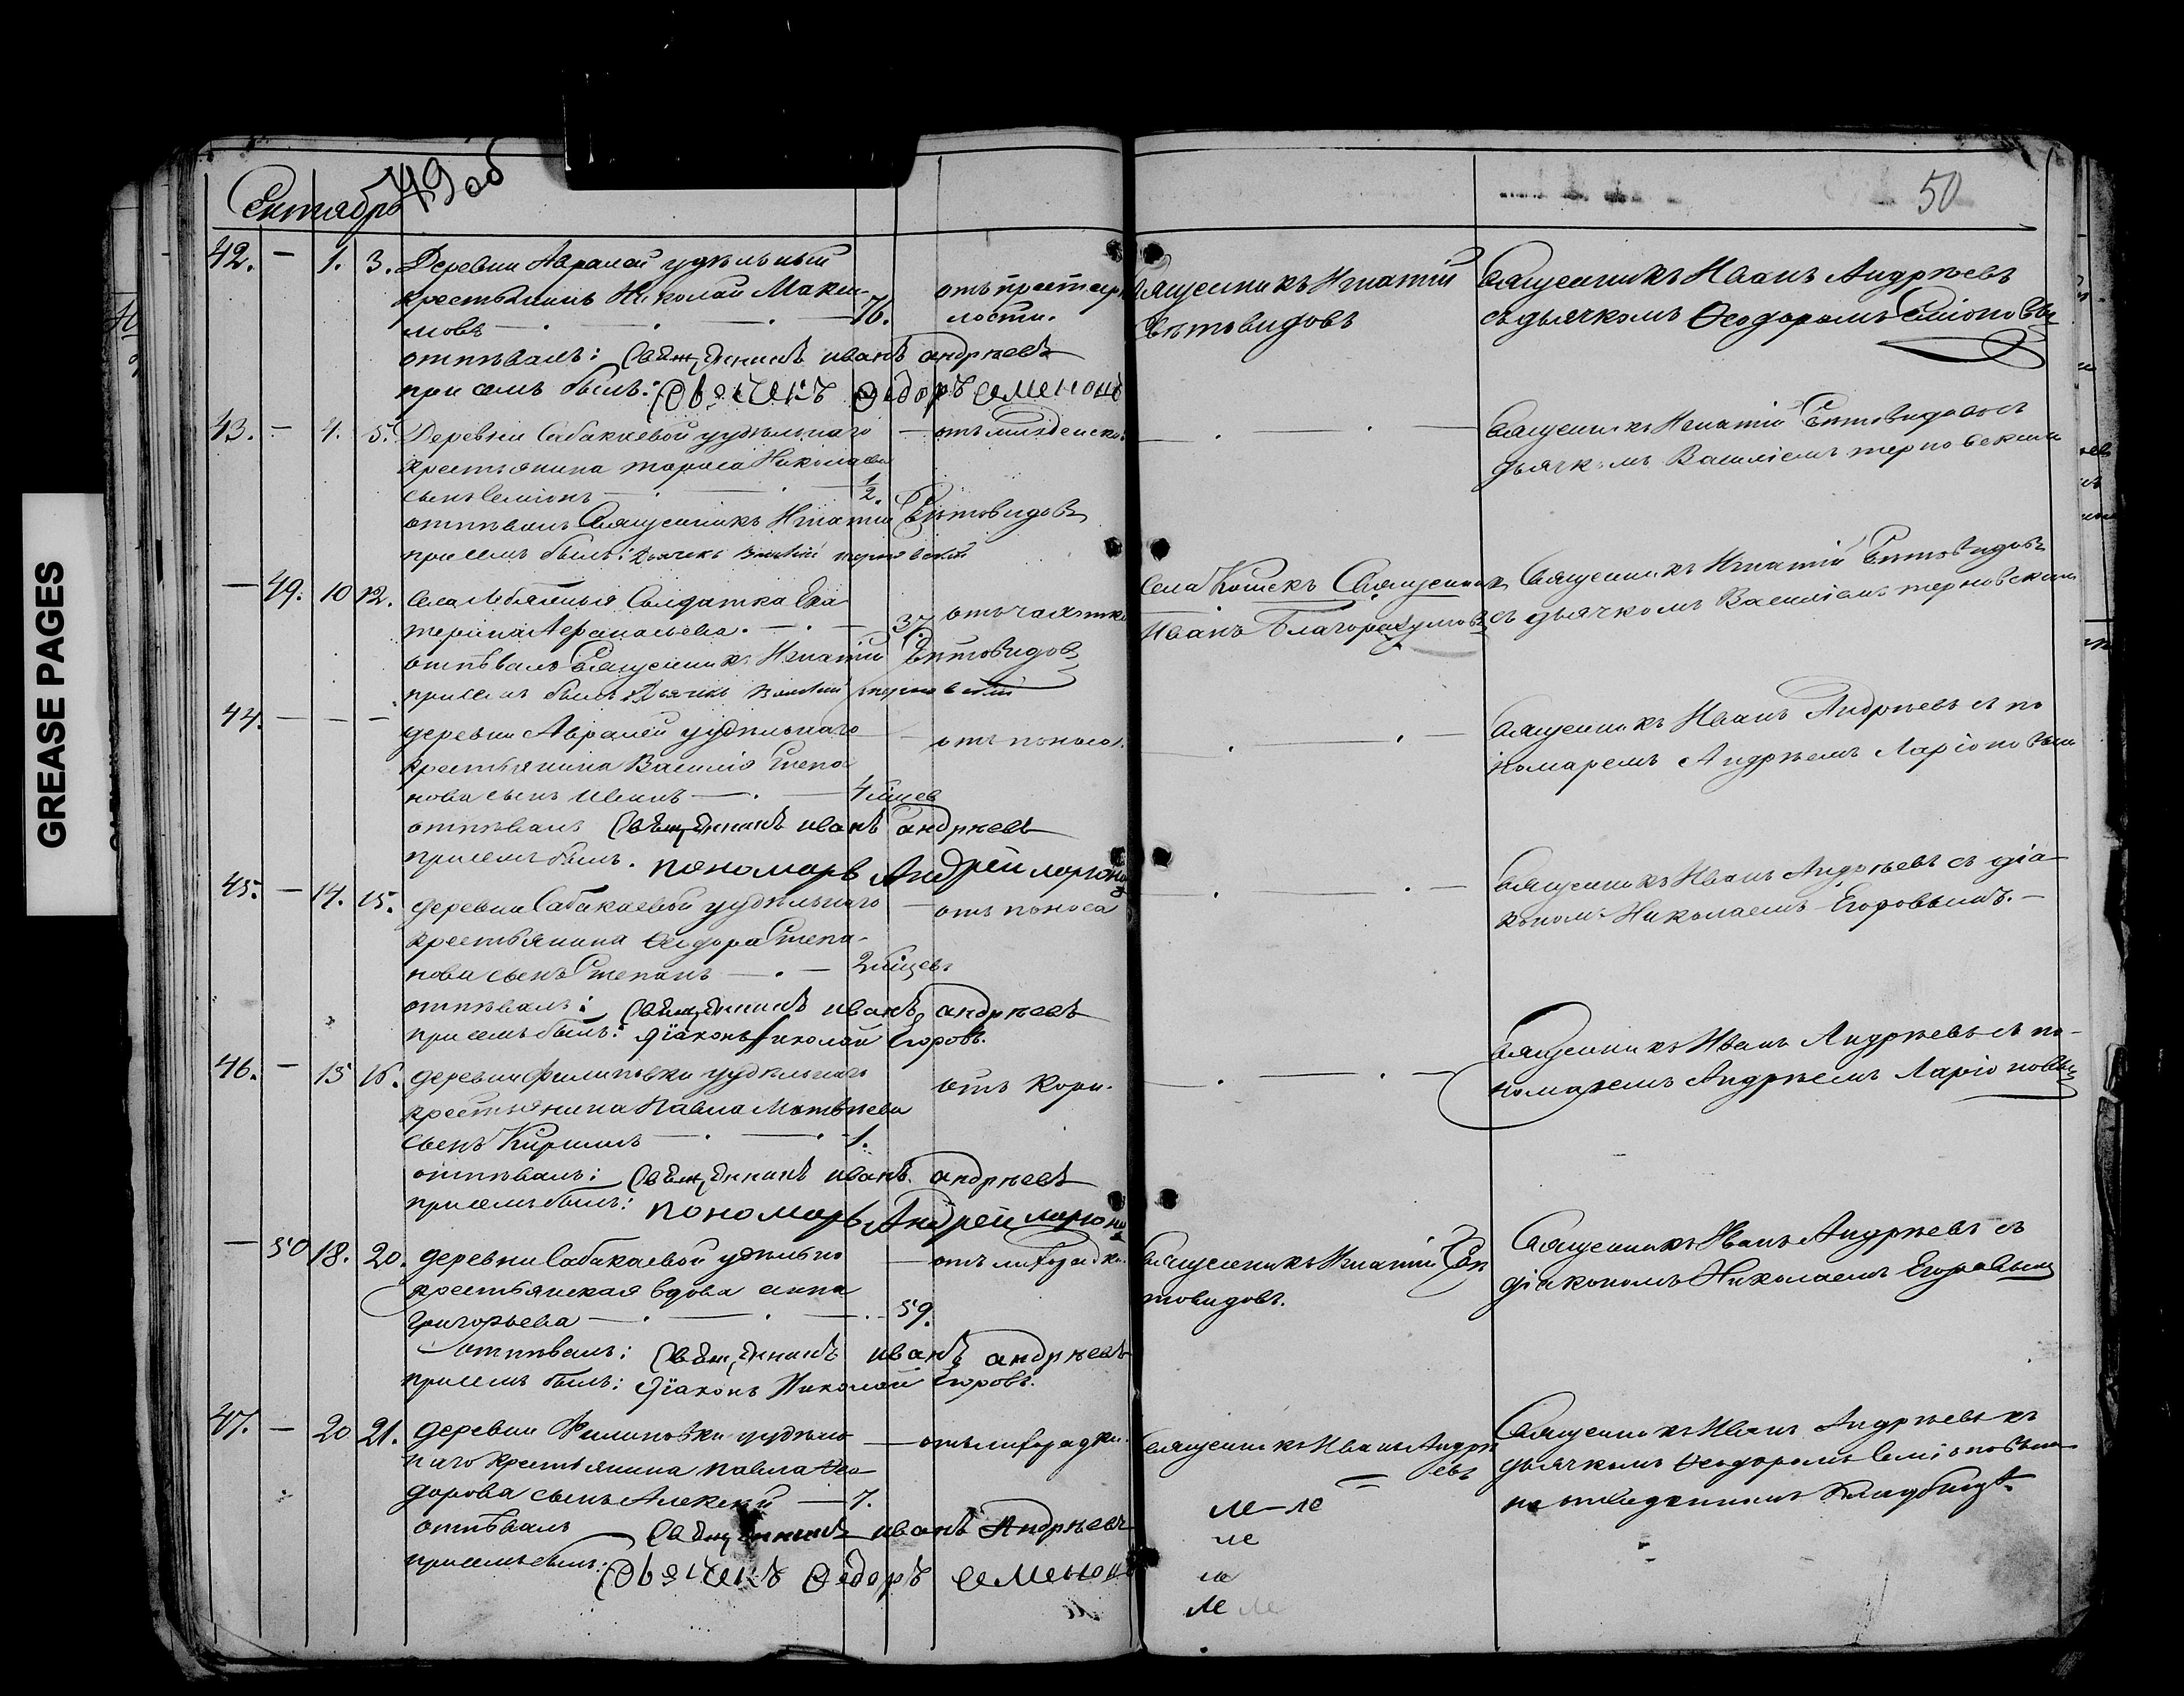 GREASE PAGES
Сентябрь
49 об
50
42. — 1. 3. Деревни Авралей удѣльный
крестьянинъ Николай Макси-
мовъ — 76.
отъ престарѣ
лости.
Священникъ Игнатій
Свѣтовидовъ
Священникъ Иванъ Андрѣевъ
съ дьячкомъ Ѳеодоромъ Семіоновы
отпѣвалъ: Свещенникъ иванъ андрѣевъ
при семъ былъ: Дьячекъ Ѳедоръ семенонъ
43. — 4. 5. Деревни Сабакаевой удѣльнаго
крестьянина тараса Николаева
сынъ Семіонъ — 1/2.
отъ младенской
Священникъ Игнатій Свѣтовидовъ съ
дьячкомъ Василіемъ терновскимъ
отпѣвалъ Священникъ Игнатій Свѣтовидовъ
при семъ былъ: Дьячекъ Василій терновский
— 49. 10 12. Села Лебяжья Солдатка Ека
терина Афанасьева. — 37.
отъ чахотки
Села Кошекъ Священникъ
Иванъ Благоразумовъ
Священникъ Игнатій Свѣтовидовъ
съ дьячкомъ Василіемъ терновскимъ
отпѣвалъ Священникъ Игнатій Свѣтовидовъ
при семъ былъ Дьячекъ Василий терновский
44. — — — деревни Авралей удѣльнаго
крестьянина Василія Степа
нова сынъ Иванъ — 4 мѣцев
отъ поноса.
Священникъ Иванъ Андрѣевъ съ по
номаремъ Андрѣемъ Ларіоновымъ
отпѣвалъ Свещенникъ иванъ андрѣевъ
при семъ былъ. пономарь Андрей ларионо
45. — 14. 15. деревни Сабакаевой удѣльнаго
крестьянина Ѳеодора Степа-
нова сынъ Степанъ — 2 мѣцевъ
отъ поноса
Священникъ Иванъ Андрѣевъ съ діа-
кономъ Николаемъ Егоровымъ. —
отпѣвалъ: Свещенникъ иванъ андрѣевъ
при семъ былъ: Діаконъ Николай Егоровъ.
46. — 15 16. деревни Филиповки удѣльнаго
крестьянина Павла Матвѣева
сынъ Кирилъ — 1.
отъ Кори.
Священникъ Иванъ Андрѣевъ съ по-
номаремъ Андрѣемъ Ларіоновымъ
отпѣвалъ: Свещенникъ иванъ андрѣевъ
при семъ былъ: пономарь Андрей ларионо
— 50 18. 20. деревни Сабакаевой удѣльно
крестьянская вдова анна
Григорьева — 59.
отъ лихорадки.
Священникъ Игнатій Свѣ
товидовъ.
Священникъ Иванъ Андрѣевъ съ
діакономъ Николаемъ Егоровымъ
отпѣвалъ: Свещенникъ иванъ андрѣевъ
при семъ былъ: Діаконъ Николай Егоровъ.
47. — 20 21. деревни Филиповки удѣль
наго крестьянина павла Ѳео
дорова сынъ Алексѣй — 7.
отъ лихорадки.
Священникъ Иванъ Андрѣ
евъ
Священникъ Иванъ Андрѣевъ съ
дьячкомъ Ѳеодоромъ Семіоновымъ
на отведенномъ Кладбищѣ.
отпѣвалъ Свещенникъ иванъ Андрѣевъ
при семъ былъ: Дьячекъ Ѳедоръ семенонъ
ле — ле
ле
ле
ле ле